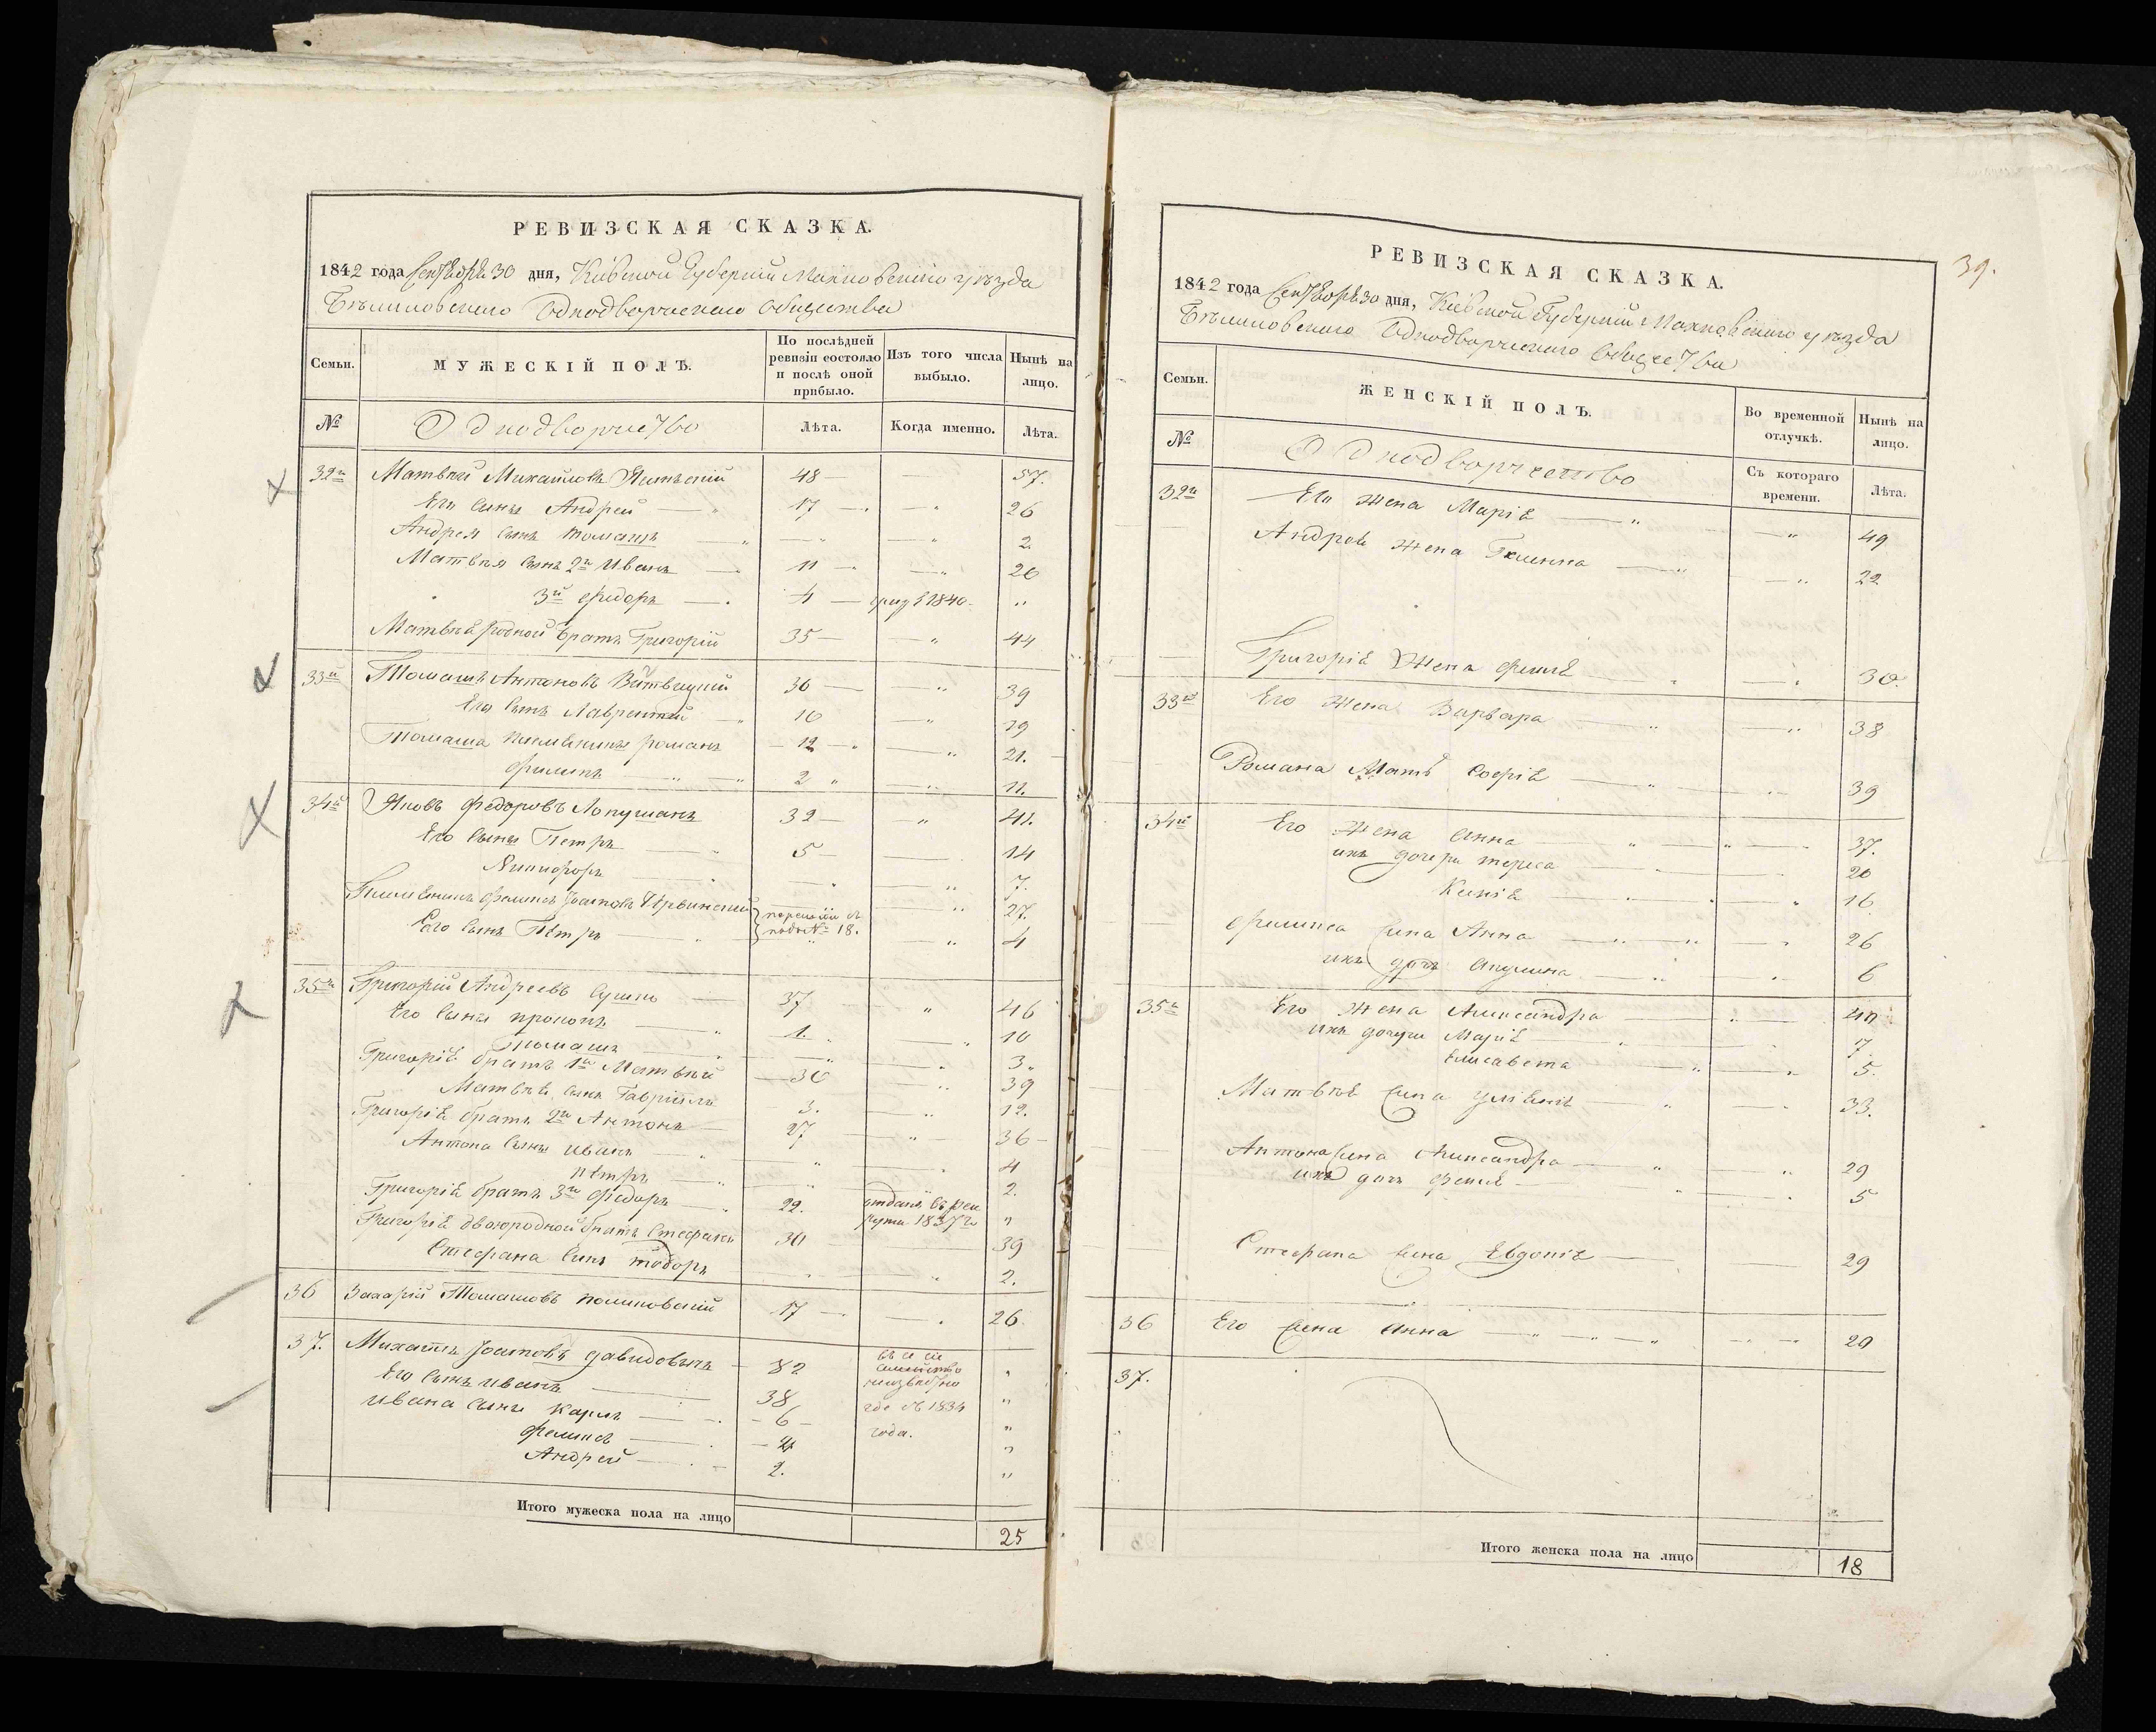 РЕВИЗСКАЯ СКАЗКА.
1842 года Сентября 30 дня, Кіевской Губерніи Махновского уѣзда
Бѣлиловского Однодворческого общества
Семьи. МУЖЕСКІЙ ПОЛЪ. По послѣдней ревизіи состояло и послѣ оной прибыло. Изъ того числа выбыло. Нынѣ на лицо.
№ Однодворчество Лѣта. Когда именно. Лѣта.
32й Матвѣй Михайловъ 48 — 57.
Его сынъ Андрей — 17 — 26
Андрея сынъ Томашъ — „ — „ 2
Матвѣя сынъ 2й Иванъ — 11 — 20
3й Федоръ — 4 — 1840. „
Матвѣя родной братъ Григорій 35 — „ 44
33й Томашъ Антоновъ Витвицкій 30 — „ 39
Его сынъ Лаврентій — 10 — „ 19
Томаша племянники романъ — 12 — „ 21.
филипъ — „ 2 „ 11.
34й Яковъ Федоровъ Лопушанъ 32 — „ 41.
Его сыны Петръ — 5 — 14
Никифоръ — „ — „ 7.
Племянникъ Феликсъ 27.
подъ № 18.
Его сынъ Петръ — „ — „ 4
35й Григорій Андреевъ Сушко — 37 „ 46
Его сыны прокопъ — „ 1. „ 10
Томашъ — „ 3.
Григорія братъ 1й Матвѣй — 30 „ 39
Матвѣя сынъ Гавріилъ 3. „ 12.
Григорія братъ 2й Антонъ — 27 — „ 36 —
Антона сыны иванъ — „ „ 4
петръ — „ „ 2.
Григорія братъ 3й Федоръ — „ 22. отданъ въ рекруты 1837 г. „
Григорія двоюродной братъ Стефанъ 30 39
Стефана сынъ тодоръ „ — „ 2.
36 Захарій Томашовъ 17 — — „ 26.
37. Михаилъ давидовичъ — 82 „
семейство
неизвѣстно
Его сынъ иванъ — 38 где съ 1834 „
ивана сыны Карлъ — — 6 — года. „
Феликсъ — 4 „
Андрей — 2. „
Итого мужеска пола на лицо 25
39.
РЕВИЗСКАЯ СКАЗКА.
1842 года Сентября 30 дня, Кіевской Губерніи Махновского уѣзда
Бѣлиловского Однодворческого Общества
Семьи. ЖЕНСКІЙ ПОЛЪ. Во временной отлучкѣ. Нынѣ на лицо.
№ Однодворчество Съ котораго времени. Лѣта.
32й Его жена Марія — „ — „ 49
Андрея жена — „ — „ 22
Григорія жена — „ — „ 30.
33й Его жена Варвара — „ — „ 38
Романа Мать Софія — „ — „ 39
34й Его жена анна — „ — „ 37.
ихъ дочери тереса — 20
Ксенія — „ — „ 16
Феликса жена Анна — „ — „ 26
ихъ дочь акулина — „ „ 6
35й Его жена Александра — „ — 40
ихъ дочери Марія — „ 7.
Елисавета — „ 5.
Матвѣя жена — „ 33.
Антона жена Александра — „ „ 29
ихъ дочь — „ 5
Стефана жена Евдокія — 29
36 Его жена анна — „ — „ — „ 20
37.
Итого женска пола на лицо 18